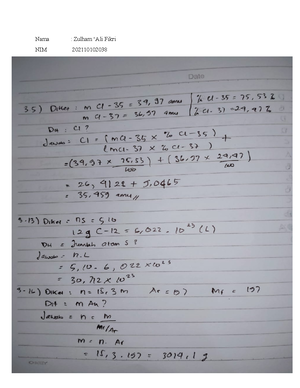 Nama : Zulham 'Ali Fikri
NIM 202110102038
Date
3.5) Diket : m Cl-35 = 34,97 amu % Cl-35 = 75,53 %
m Cl-37 = 36,97 amu % Cl-37 = 24,47 %
Dit : Cl ?
Jawab : Cl = (m Cl-35 × % Cl-35) +
(m Cl-37 × % Cl-37)
= (34,97 × 75,53) + (36,97 × 24,47)
100 100
= 26,4128 + 9,0465
= 35,459 amu //
3.13) Diket = ns = 5,10
12 g C-12 = 6,022 . 10²³ (L)
Dit = Jumlah atom S ?
Jawab = n . L
= 5,10 . 6,022 × 10²³
= 30,712 × 10²³
3-16) Diket = n = 15,3 m Ar = D? Mr = 197
Dit = m Au ?
Jawab = n = m
Mr/Ar
m = n . Ar
= 15,3 . 197 = 3014,1 g